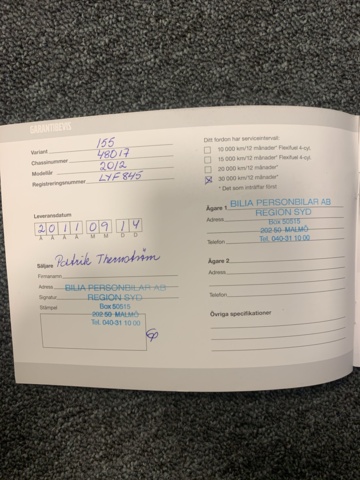 GARANTIBEVIS
Variant 155
Chassinummer 48017
Modellår 2012
Registreringsnummer LYF845
Leveransdatum
2 0 1 1 0 9 1 4
Å Å Å Å M M D D
Säljare Patrik Thernström
Firmanamn
Adress BILIA PERSONBILAR AB
REGION SYD
Signatur
Box 50515
Stämpel
202 50 MALMÖ
Tel. 040-31 10 00
Ditt fordon har serviceintervall:
10 000 km/12 månader* Flexifuel 4-cyl.
15 000 km/12 månader* Flexifuel 5-cyl.
20 000 km/12 månader*
30 000 km/12 månader*
* Det som inträffar först
Ägare 1 BILIA PERSONBILAR AB
REGION SYD
Adress
Box 50515
202 50 MALMÖ
Telefon Tel. 040-31 10 00
Ägare 2
Adress
Telefon
Övriga specifikationer